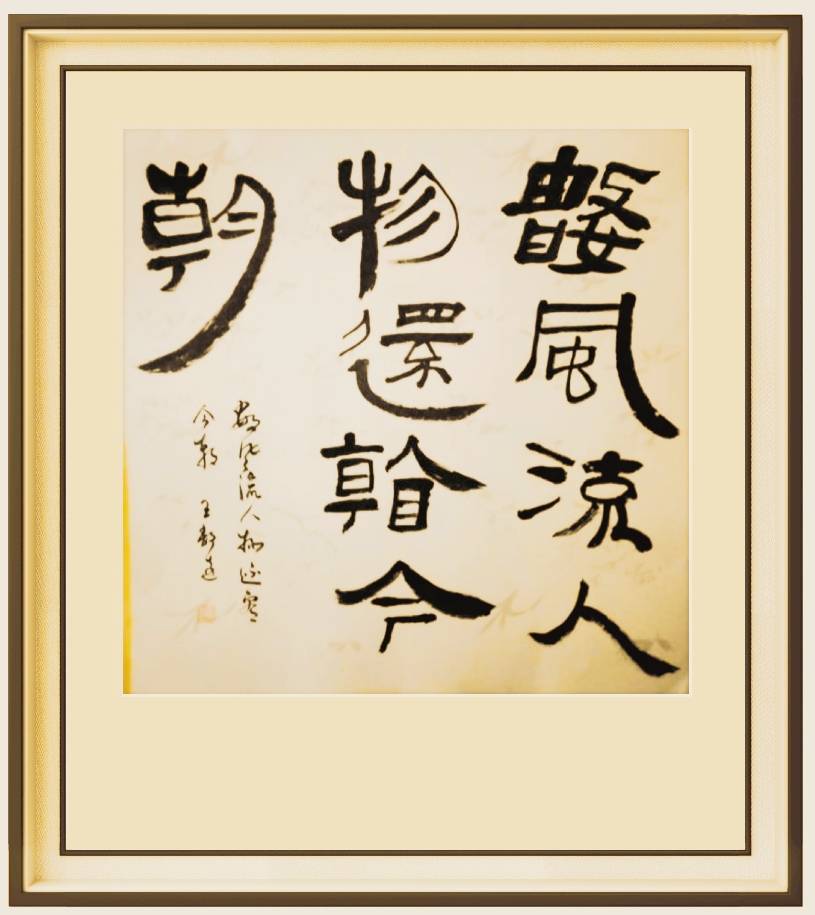 數風流人
物還看今
朝
數风流人物还看
今朝 王